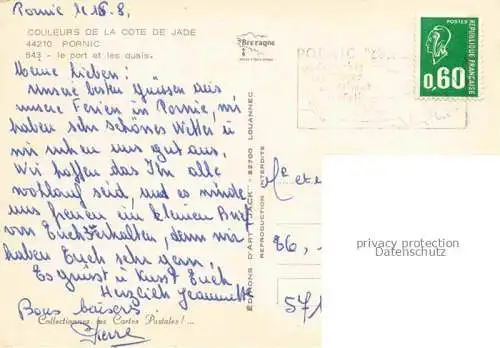 Pornic le 18.8.
COULEURS DE LA COTE DE JADE
44210 PORNIC
843 - le port et les quais.
Meine lieben!
Unsere besten Grüssen aus
unsere Ferien in Pornic, wir
haben sehr schönes Wetter u
wir ruhen uns gut aus.
Wir hoffen das Ihr alle
wohlauf seid, und es würde
uns freuen ein kleinen Brief
von Euch zu erhalten, denn wir
haben Euch sehr gern,
Es grüsst u küsst Euch
Herzlich Jeannette
Bons baisers
Pierre
Collectionnez les Cartes Postales! ...
Bretagne
EDITIONS D'ART "JACK" - 22700 LOUANNEC
REPRODUCTION INTERDITE
PORNIC
POSTES
0,60
REPUBLIQUE FRANÇAISE
Mr et
86,
571
privacy protection
Datenschutz